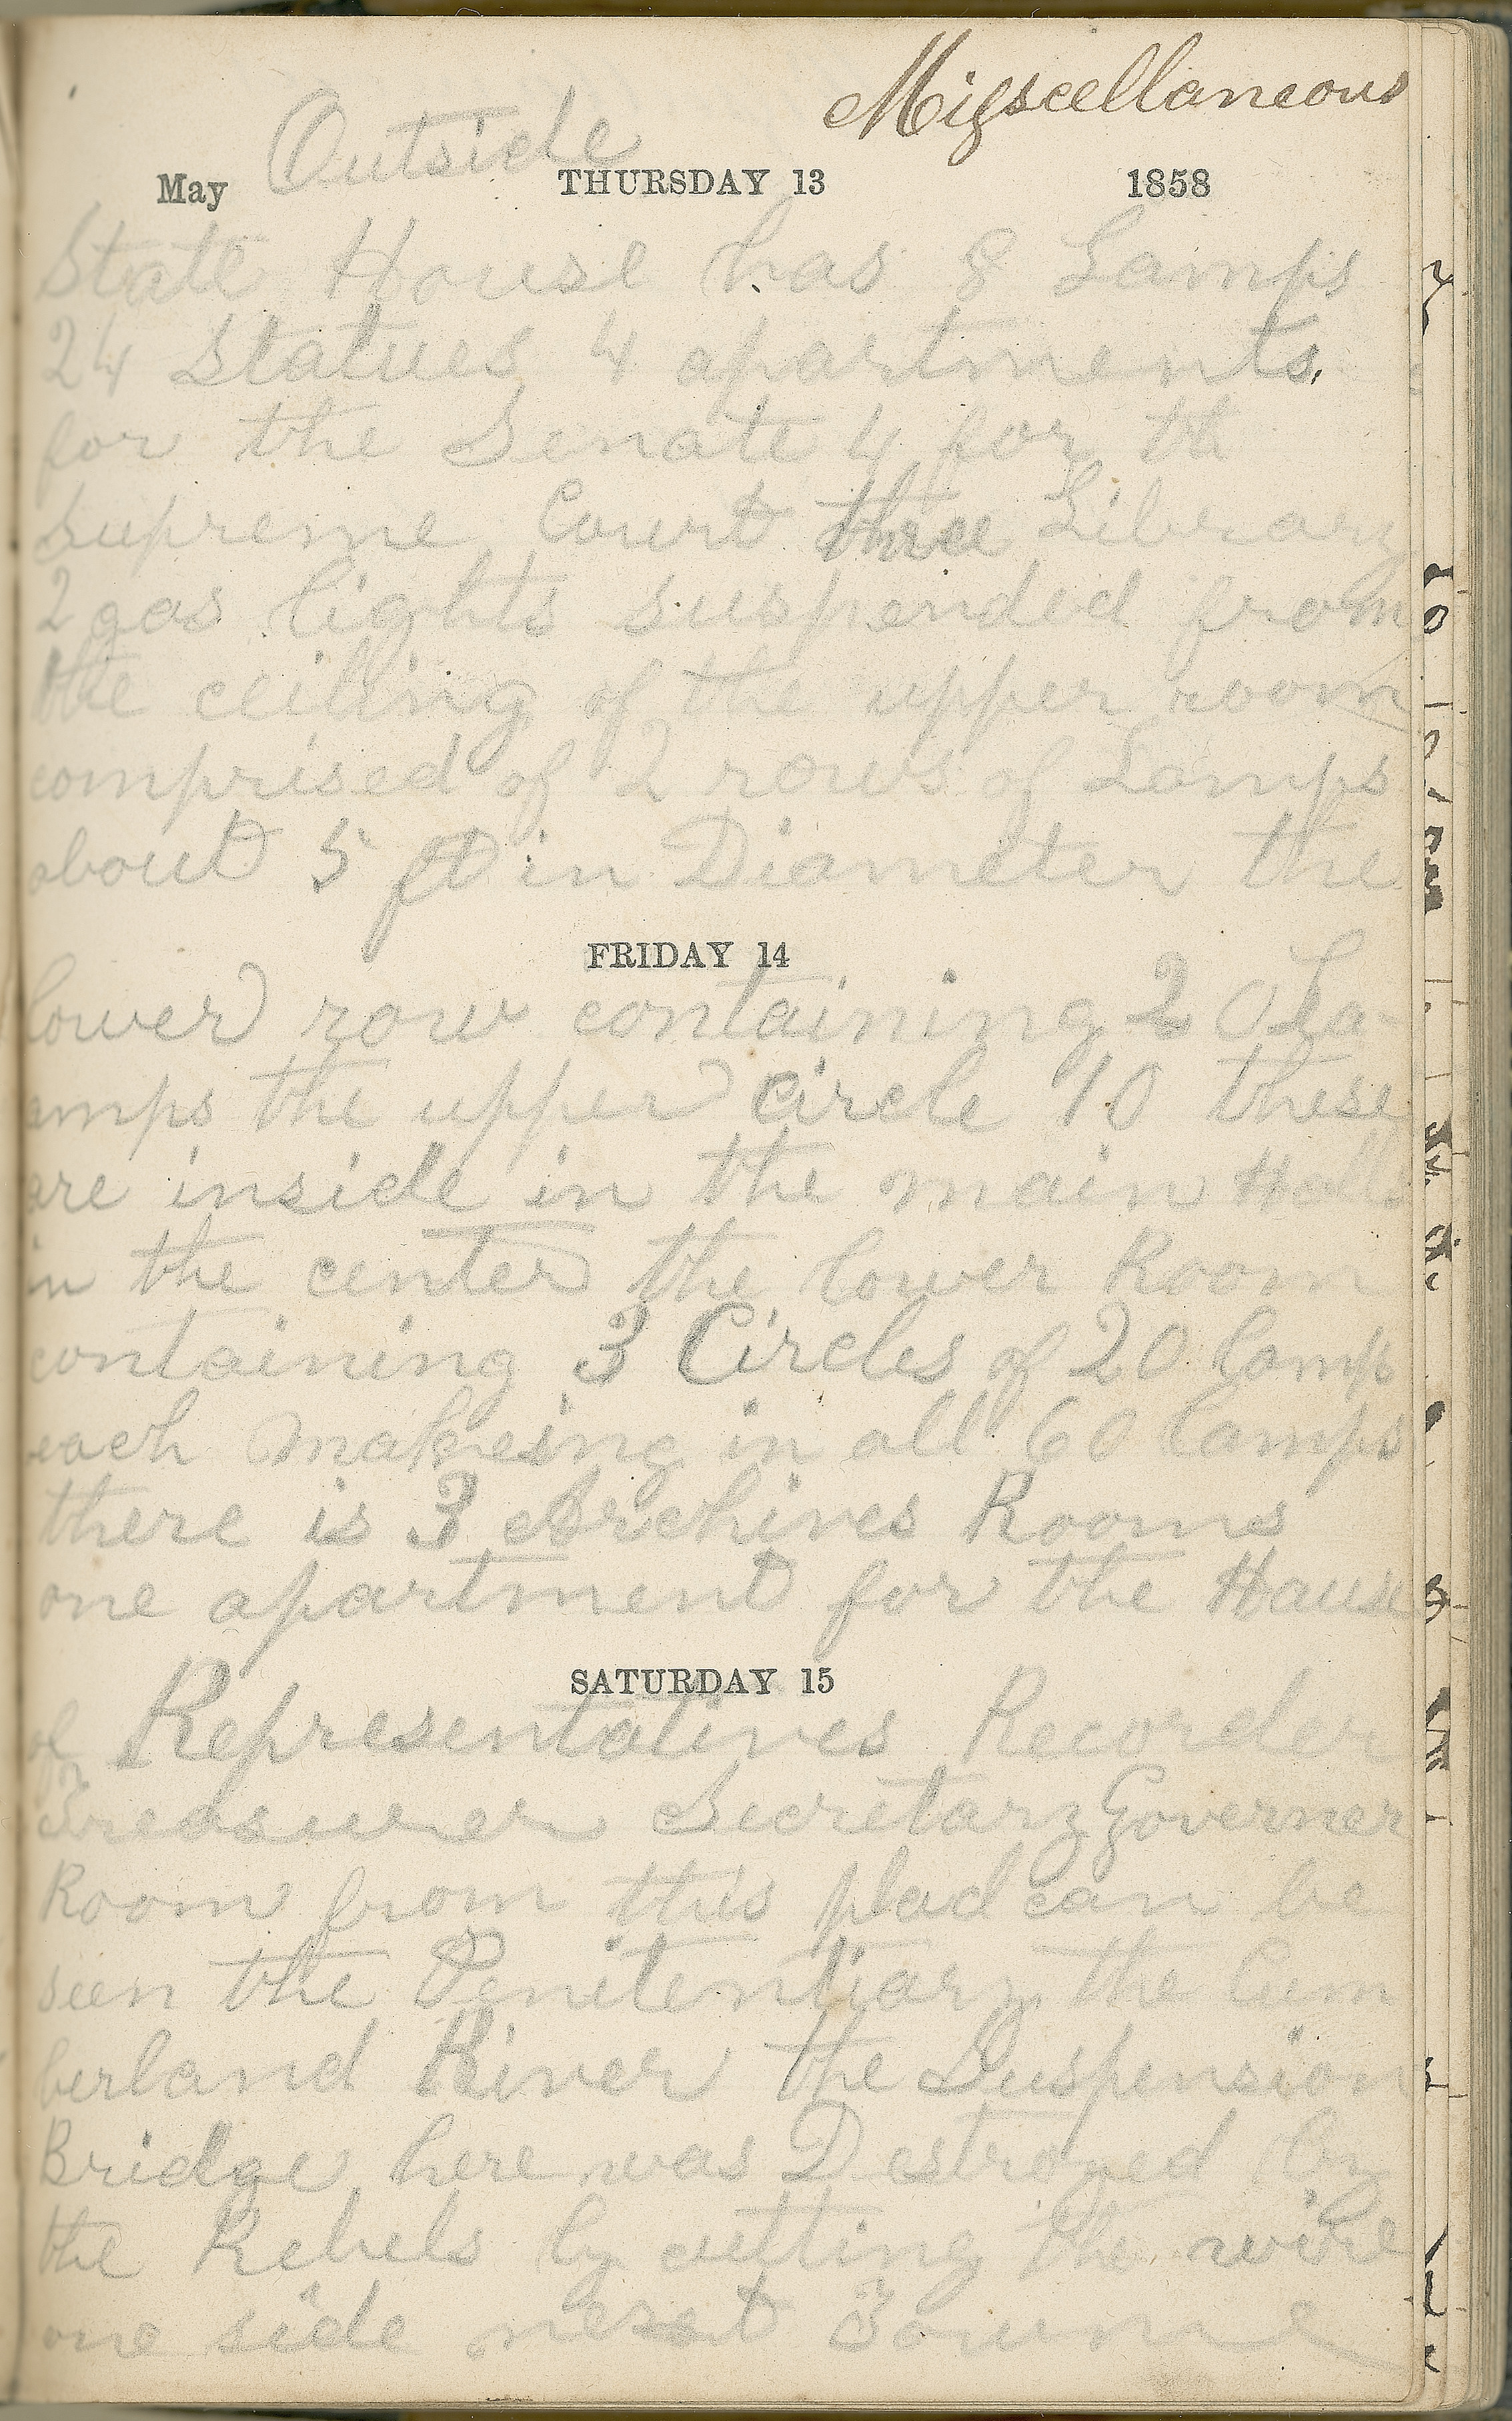 Migscellaneous
Outside
May THURSDAY 13 1858
State House has 8 Lamps
24 Statues 4 apartments,
for the Senate 4 for th
Supreme Court three Library
2 gas lights suspended from
the ceilling of the upper room
comprised of 2 rows of Lamps
about 5 ft in Diameter the
FRIDAY 14
lower row containing 20 La-
amps the upper circle 10 these
are inside in the main Halls
in the center the lower Room
containing 3 Circles of 20 lamps
each makeing in all 60 lamps
there is 3 Archives Rooms
one apartment for the Hause
SATURDAY 15
of Representatives Recorder
Treasurer Secretary Governer
Room from this plad can be
seen the Penitentiary the Cum
berland River the Suspension
Bridge here was Destroyed by
the Rebels by cutting the wire
one side next Towne